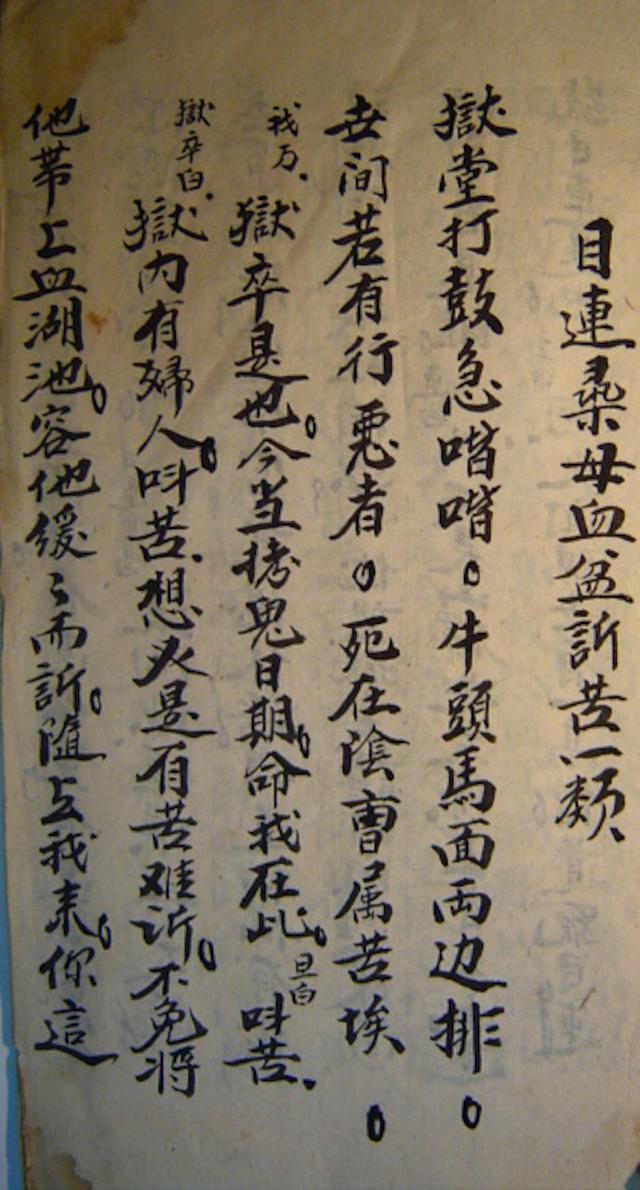 目連尋母血盆訴苦一類
獄堂打鼓急喈喈。牛頭馬面両边排。
世间若有行悪者。死在陰曹属苦埃。
我万。獄卒是也。今当拷鬼日期。命我在此。旦白 呌苦。
獄卒白。獄内有婦人。呌苦。想必是有苦难訴。不免将
他带上血湖池。容他缓〻而訴。隨上我来。你這